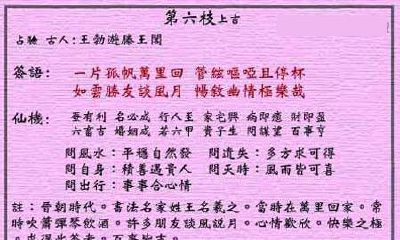 第六枝上吉
占驗 古人:王勃遊滕王閣
簽語: 一片孤帆萬里回 管絃嘔啞且停杯
如雲勝友談風月 暢敘幽情極樂哉
仙機: 蚕有利 名必成 行人至 家宅興 病即癒 財即盈
六畜吉 婚姻咸 若六甲 貴子生 問謀望 百事亨
問風水:平穩自然發 問遺失:多方求可得
問自身:積善遇貴人 問天時:風雨皆可喜
問出行:事事合心情
註:晉朝時代。書法名家姓王名羲之。當時在萬里回家。常
時吹簫彈琴飲酒。許多朋友談風說月。心情歡欣。快樂之極